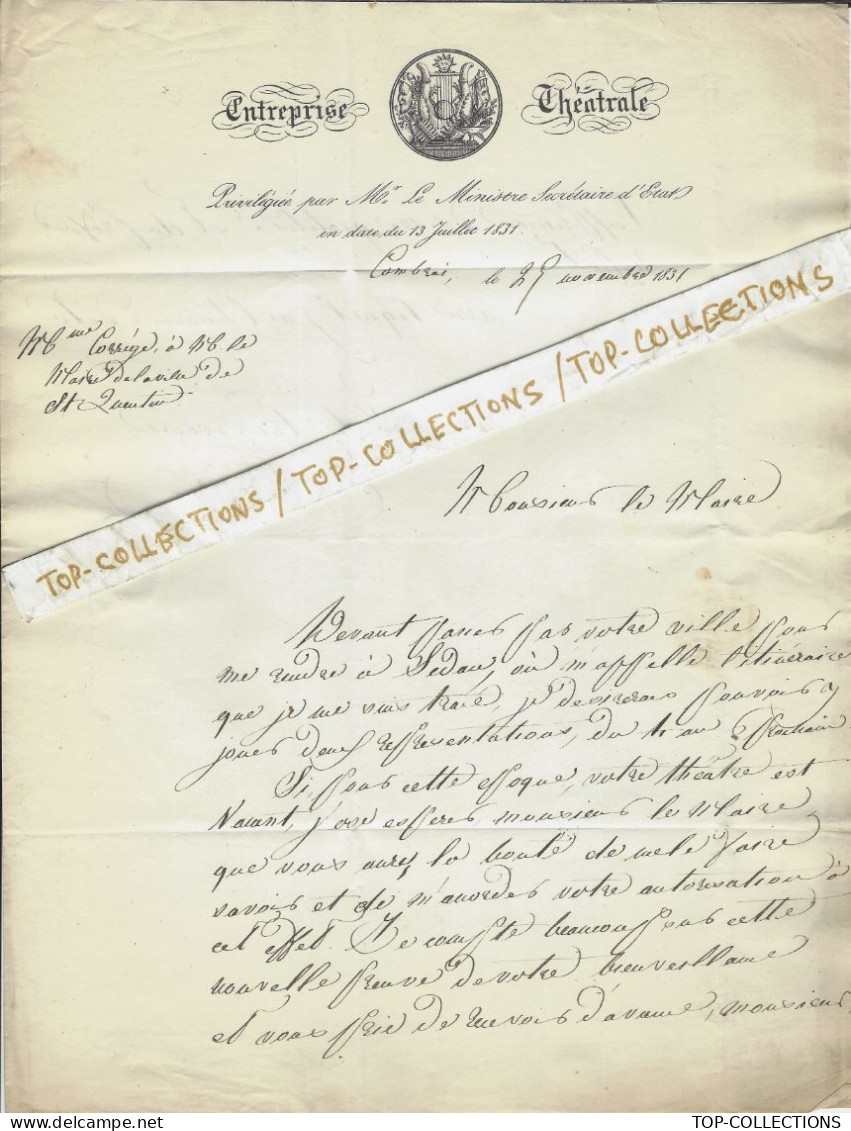 Entreprise Théatrale
Privilégiée par Mr. Le Ministre Secrétaire d'Etat
en date du 13 Juillet 1831.
Cambrai, le 25 novembre 1831
Mme Corrége, à M. le
Maire de la ville de
St Quentin.
TOP-COLLECTIONS / TOP-COLLECTIONS / TOP-COLLECTIONS
Monsieur le Maire
Devant passer par votre ville pour
me rendre à Sedan, où m'appelle l'itinéraire
que je me suis tracé, je desirerais pouvoir y
jouer deux représentations, du 1er au 5 prochain.
Si, pour cette époque, votre théâtre est
Vacant, j'ose espérer, monsieur le Maire,
que vous aurez la bonté de me le faire
savoir et de m'accorder votre autorisation à
cet effet. Je compte beaucoup sur cette
nouvelle preuve de votre bienveillance
et vous prie de recevoir d'avance, monsieur,
TOP-COLLECTIONS